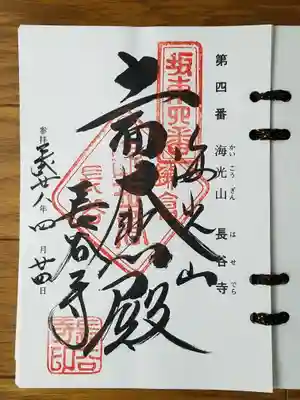 第四番 海光山 長谷寺
かいこうざん はせでら
坂東四番
海光山
十一面大悲殿
長谷寺
参拝 年 四月廿四日
長谷寺印